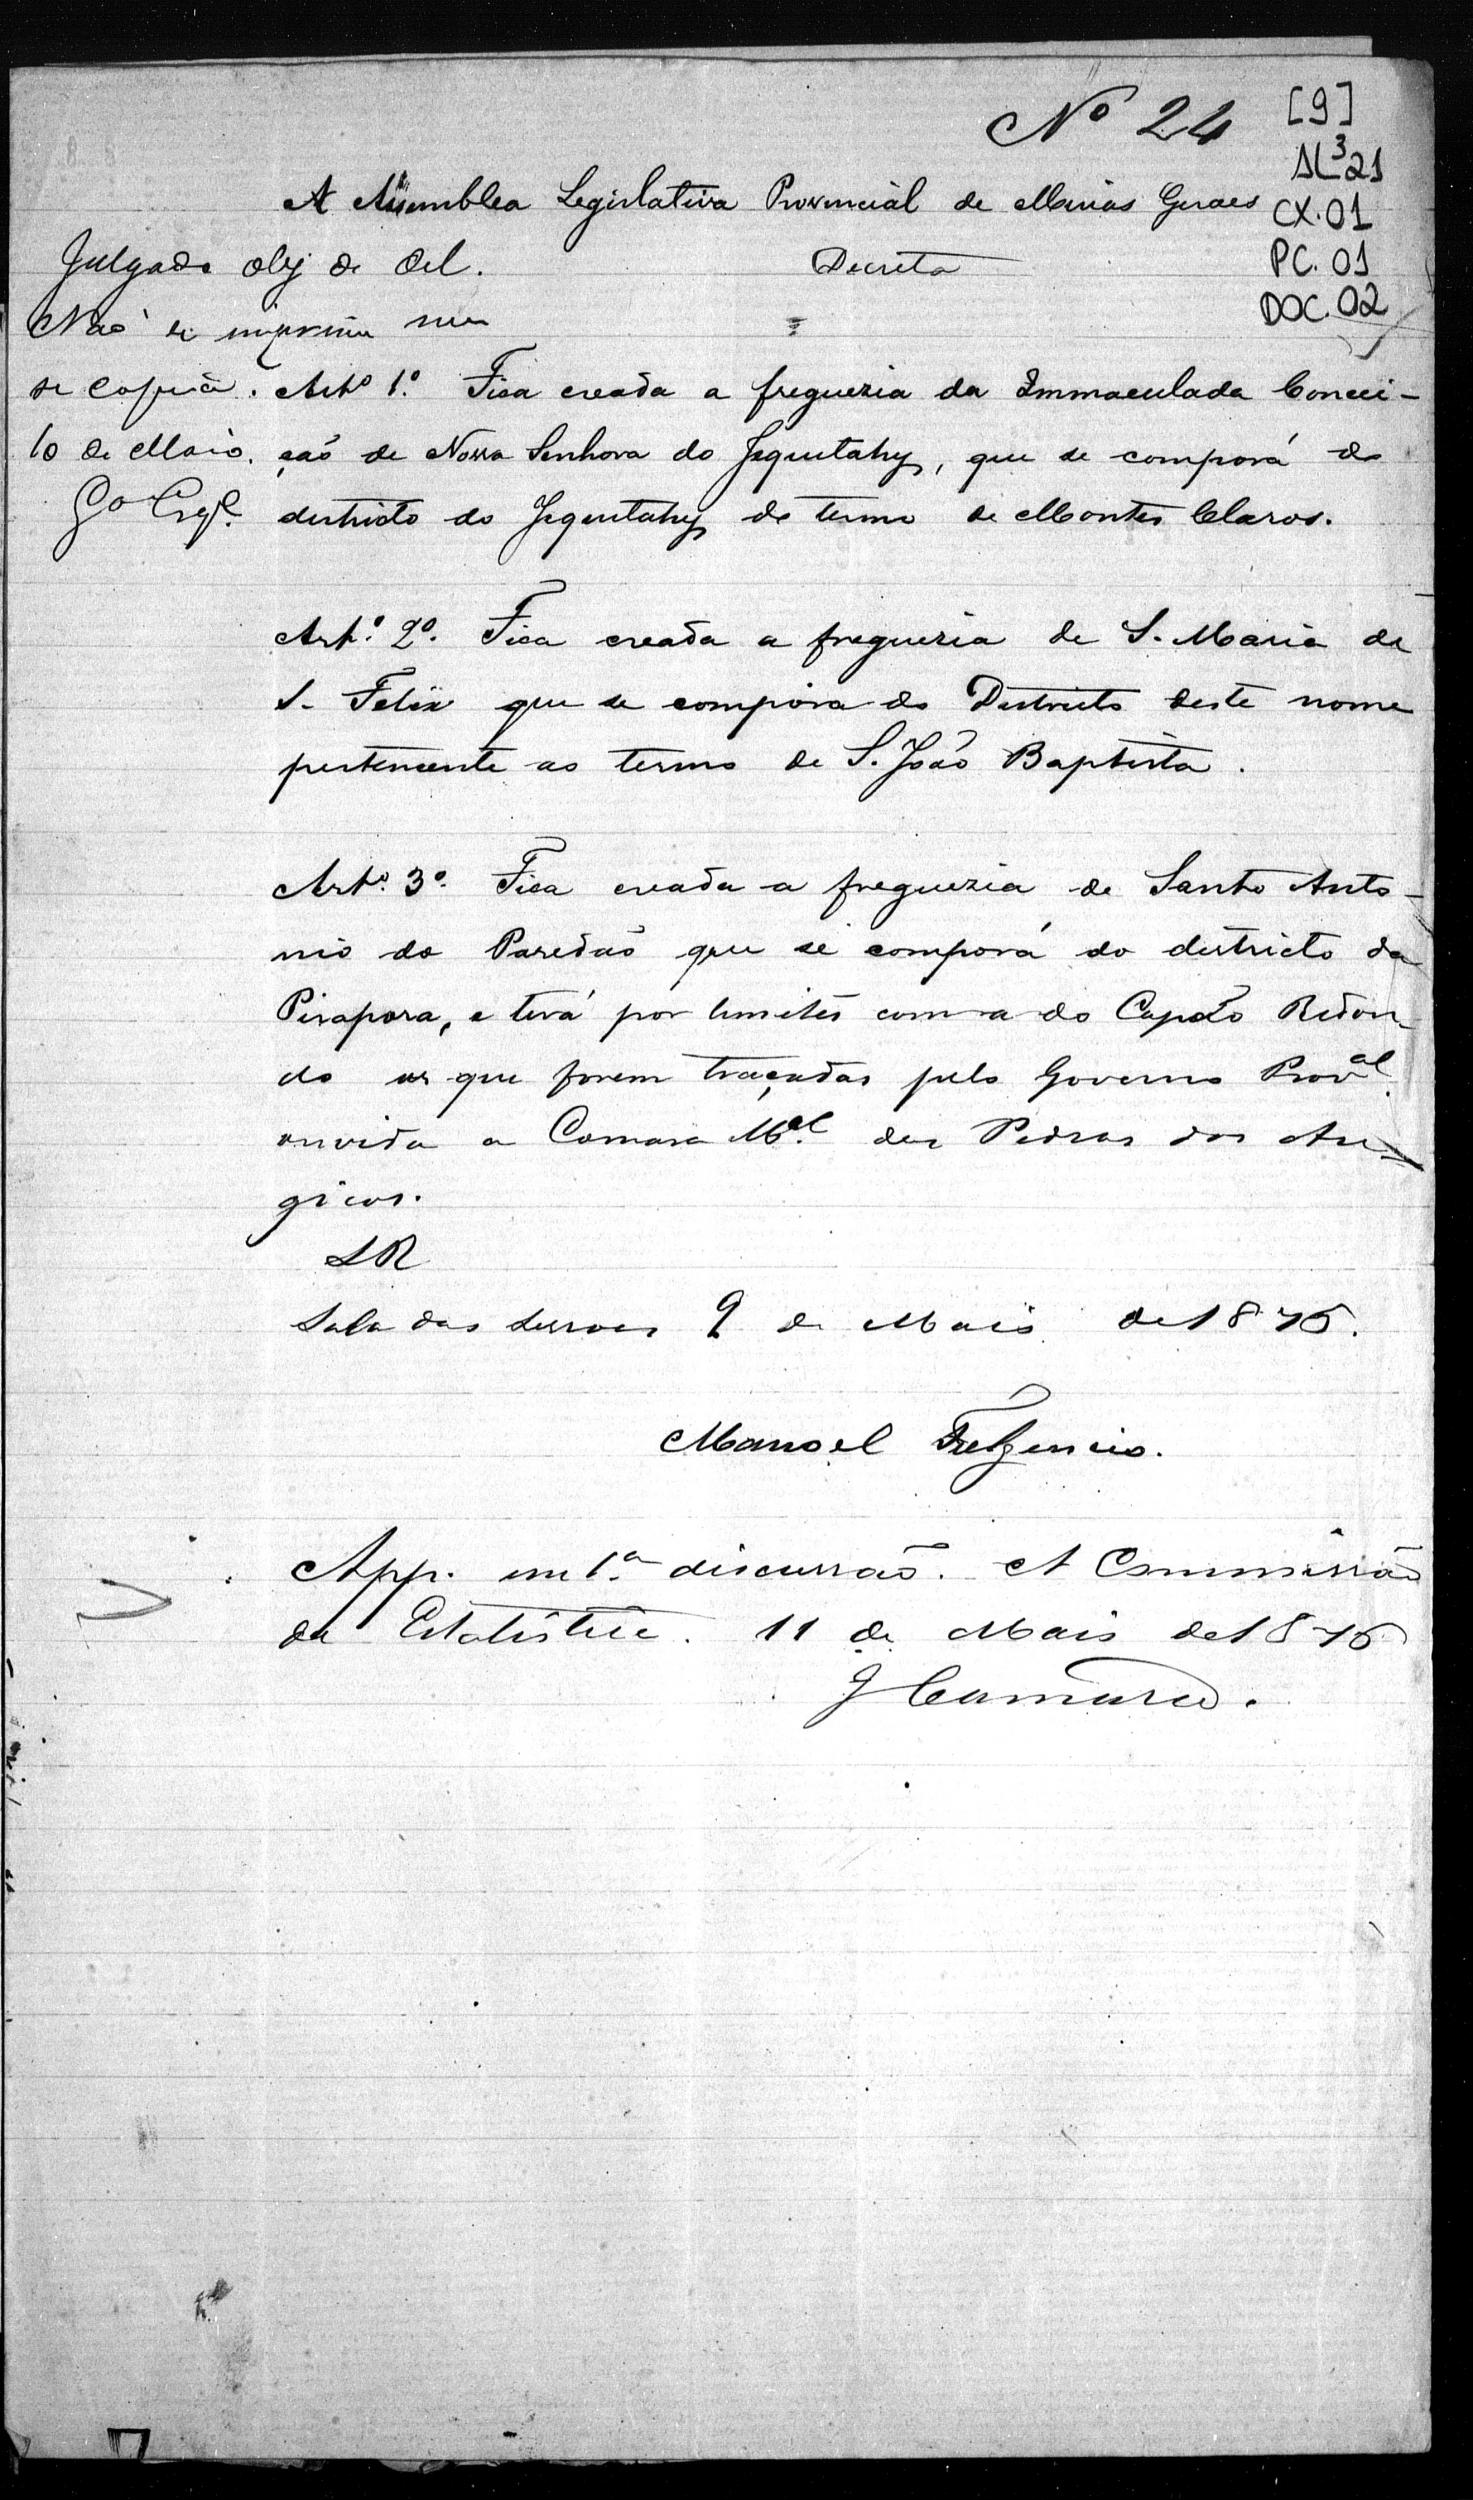 Nº 24
[9]
AL³21
CX.01
PC. 01
DOC. 02
A Assemblea Legislativa Provincial de Minas Geraes
Decreta
Julgado obj de del.
Não se imprima
se copia.
10 de Maio.
Artº 1º. Fica creada a freguezia da Immaculada Concei-
ção de Nossa Senhora do Jequitahy, que se comporá do
districto do Jequitahy do termo de Montes Claros.
Artº. 2º. Fica creada a freguezia de S. Maria de
S. Felix que se comporá do Districto deste nome
pertencente ao termo de S. João Baptista.
Artº. 3º. Fica creada a freguezia de Santo Anto-
nio do Paredão que se comporá do districto da
Pirapora, e terá por limites com a do Capão Redon-
do os que forem traçadas pelo Governo Prov.al
ouvida a Camara M.al das Pedras dos An-
gicos.
SR
Sala das sessoes 9 de Maio de 1876.
Manoel Fulgencio.
App. em 1ª discussão. A Commissão
de Estatistica. 11 de Maio de 1876
J Camara.